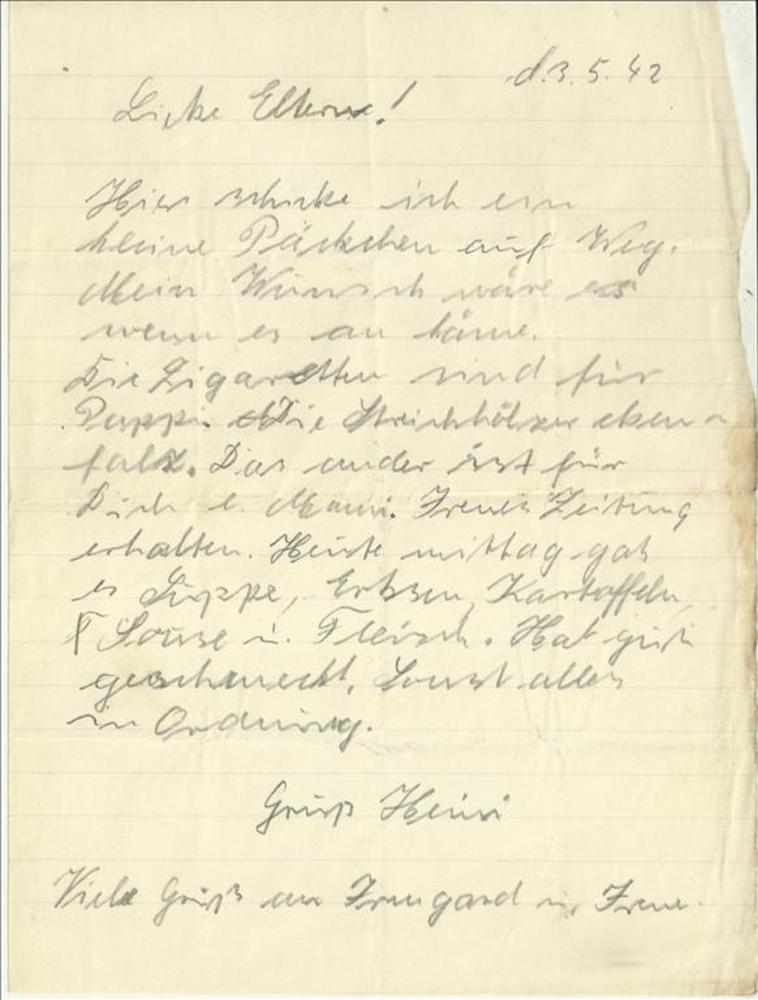 d. 3. 5. 42
Liebe Eltern!
Hier schicke ich ein
kleine Päckchen auf Weg.
Mein Wunsch wäre es
wenn es an käme.
Die Zigaretten sind für
Pappi. Die Streichhölzer eben-
falls. Das ander ist für
Dich l. Mami. Irenes Zeitung
erhalten. Heute mittag gab
es Suppe, Erbsen, Kartoffeln,
Souse u. Fleisch. Hat gut
geschmeckt. Sonst alles
in Ordnung.
Gruß Heini
Viele Grüß an Irmgard u. Irene.